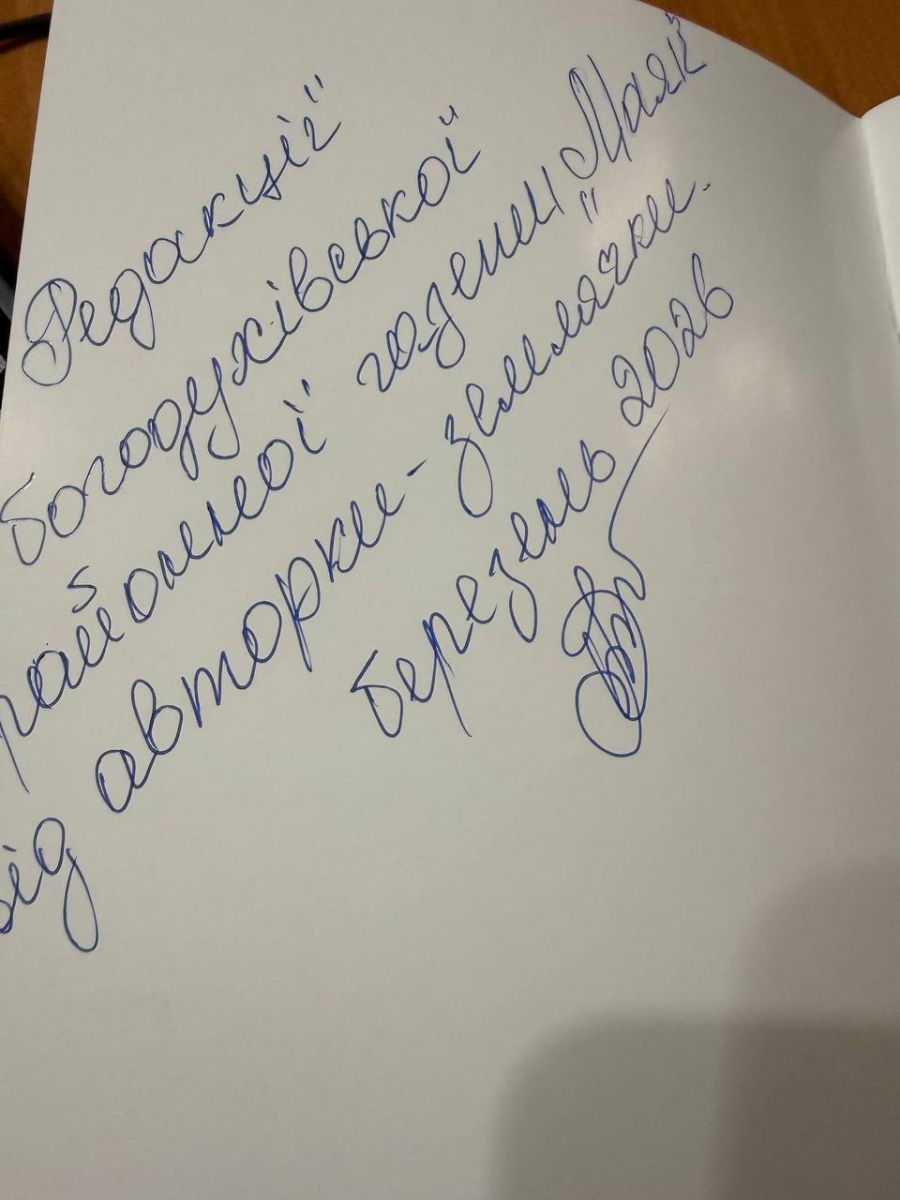 Редакції
богодухівської
районної газети „Маяк"
від авторки-землячки.
березень 2026